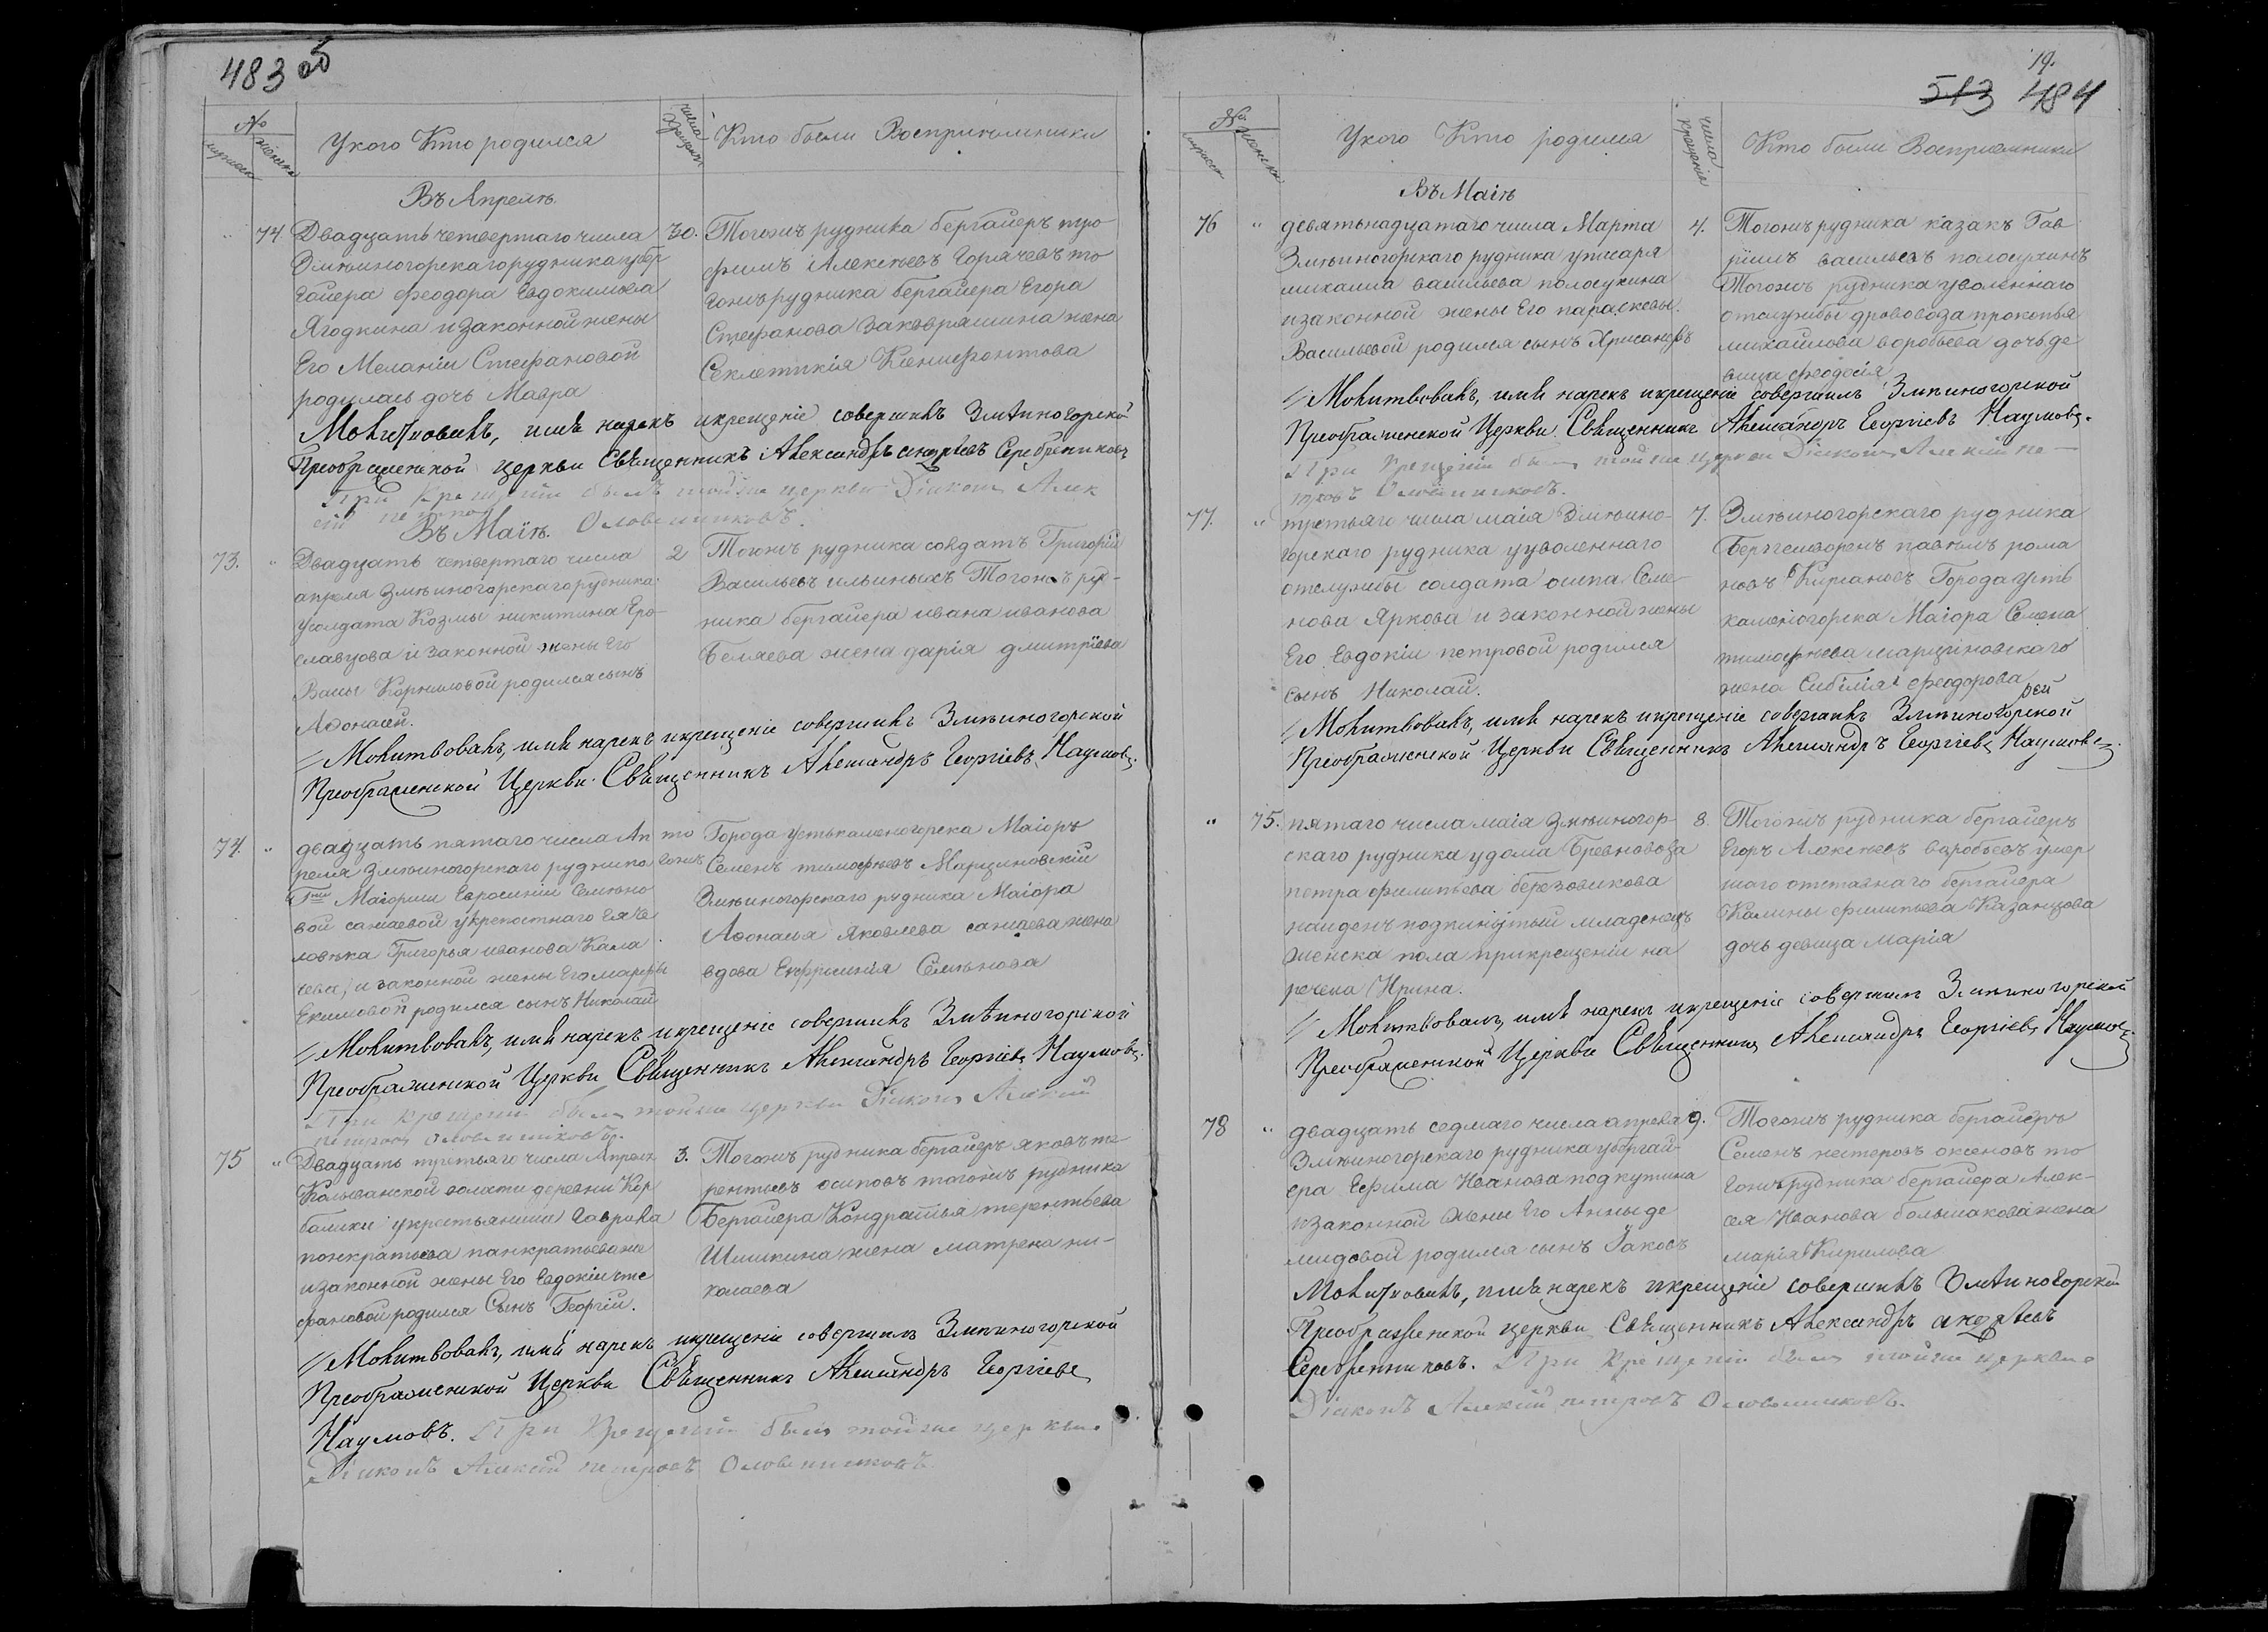 483 об
№
мужеск женска
У кого Кто родился
числа крещен
Кто были Восприемники
Въ Апрелѣ.
" 74. Двадцать четвертаго числа
Змѣиногорскаго рудника у бер
гайера Феодора Евдокимова
Ягодкина и законной жены
Его Меланіи Стефановой
родилась дочь Мавра
30. Тогожъ рудника бергайеръ тро
фимъ Алексѣевъ Горячевъ то
гожъ рудника бергайера Егора
Стефанова Заковряшина жена
Секлетикія Ксенифонтова
Молитвовалъ, имя нарекъ и крещеніе совершилъ Змѣиногорской
Преображенской церкви Священникъ Александръ андрѣевъ Серебрениковъ
При крещеніи былъ тойже церкви Діаконъ Алек
сій петровъ Оловянишниковъ.
Въ Маіѣ.
73. " Двадцать четвертаго числа
апреля Змѣиногорскаго рудника
у солдата Козмы никитина Еро
славцова и законной жены Его
Васы Корниловой родился сынъ
Афонасей.
2 Тогожъ рудника солдатъ Григорій
Васильевъ ильиныхъ Тогожъ руд-
ника бергайера ивана иванова
Беляева жена дарія дмитріева
Молитвовалъ, имя нарекъ и крещеніе совершилъ Змѣиногорской
Преображенской Церкви Священникъ Александръ Георгіевъ Наумовъ.
74. " двадцать пятаго числа Ап
реля Змѣиногорскаго рудника
Гжи Маіорши Евросиніи Семено
вой санаевой у крепостнаго Ея че
ловѣка Григорья иванова Кала
чева, и законной жены Его марфы
Екимовой родился сынъ Николай
то
гожъ
Города Устькаменогорска Маіоръ
Семенъ тимофѣевъ Марциновскій
Змѣиногорскаго рудника Маіора
Афонасья Яковлева санаева жена
вдова Ефросинія Семѣнова
Молитвовалъ, имя нарекъ и крещеніе совершилъ Змѣиногорской
Преображенской Церкви Священникъ Александръ Георгіевъ Наумовъ.
При крещеніи былъ тойже церкви Діаконъ Алексій
петровъ Оловянишниковъ.
75 " Двадцать третьяго числа Апреля
Колыванской волости деревни Кор
болихи у крестьянина Гаврила
понкратьева панкратьева же
и законной жены Его Евдокіи сте
фановой родился Сынъ Георгій.
3. Тогожъ рудника бергайеръ яковъ те
рентьевъ осиповъ тогожъ рудника
Бергайера Кондратья терентьева
Шишкина жена матрена ни-
колаева
Молитвовалъ, имя нарекъ и крещеніе совершилъ Змѣиногорской
Преображенской Церкви Священникъ Александръ Георгіевъ
Наумовъ. При Крещеніи былъ тойже церкви
Діаконъ Алексій петровъ Оловянишниковъ
19.
513 484
№
мужеск женска
У кого Кто родился
числа крещенія
Кто были Восприемники
Въ Маіѣ
76 " девятьнадцатаго числа Марта
Змѣиногорскаго рудника у писаря
михаила васильева полосухина
и законной жены Его параскевы
Васильевой родился сынъ Хрисанфъ
4. Тогожъ рудника казакъ Гав
ріилъ васильевъ полосухинъ
Тогожъ рудника уволеннаго
отслужбы дрововоза прокопья
михайлова воробьева дочь де
вица Феодосія
Молитвовалъ, имя нарекъ и крещеніе совершилъ Змѣиногорской
Преображенской Церкви Священникъ Александръ Георгіевъ Наумовъ.
При Крещеніи былъ тойже церкви Діаконъ Алексій пе-
тровъ Оловянишниковъ.
77. " третьяго числа маія Змѣино-
горскаго рудника у уволеннаго
отслужбы солдата осипа Семе-
нова Яркова и законной жены
Его Евдокіи петровой родился
сынъ Николай.
7. Змѣиногорскаго рудника
Бергешворенъ павелъ рома
новъ Кирсановъ Города Усть
каменогорска Маіора Семена
тимофѣева марциновскаго
жена Сибілія Феодорова
Молитвовалъ, имя нарекъ и крещеніе совершилъ Змѣиногорской
Преображенской Церкви Священникъ Александръ Георгіевъ Наумовъ.
" 75. пятаго числа маія Змѣиногор-
скаго рудника у дома Бревновоза
петра филипьева березовикова
найденъ подкинутый младенецъ
женска пола прикрещеніи на
речена Ирина.
8. Тогожъ рудника бергайеръ
Егоръ Алексѣевъ воробьевъ умер
шаго отставнаго бергайера
Калины филипьева Казанцова
дочь девица марія
Молитвовалъ, имя нарекъ и крещеніе совершилъ Змѣиногорской
Преображенской Церкви Священникъ Александръ Георгіевъ Наумовъ.
78 " двадцать седмаго числа апреля
Змѣиногорскаго рудника у бергай-
ера Ефима Иванова подкутина
и законной жены Его Анны де
мидовой родился сынъ Іаковъ
9. Тогожъ рудника бергайеръ
Семенъ нестеровъ оксеновъ то
гожъ рудника бергайера Алек-
сея Иванова большакова жена
марія Кирилова
Молитвовалъ, имя нарекъ и крещеніе совершилъ Змѣиногорской
Преображенской церкви Священникъ Александръ андрѣевъ
Серебрениковъ. При Крещеніи былъ тойже церкви
Діаконъ Алексій петровъ Оловянишниковъ.